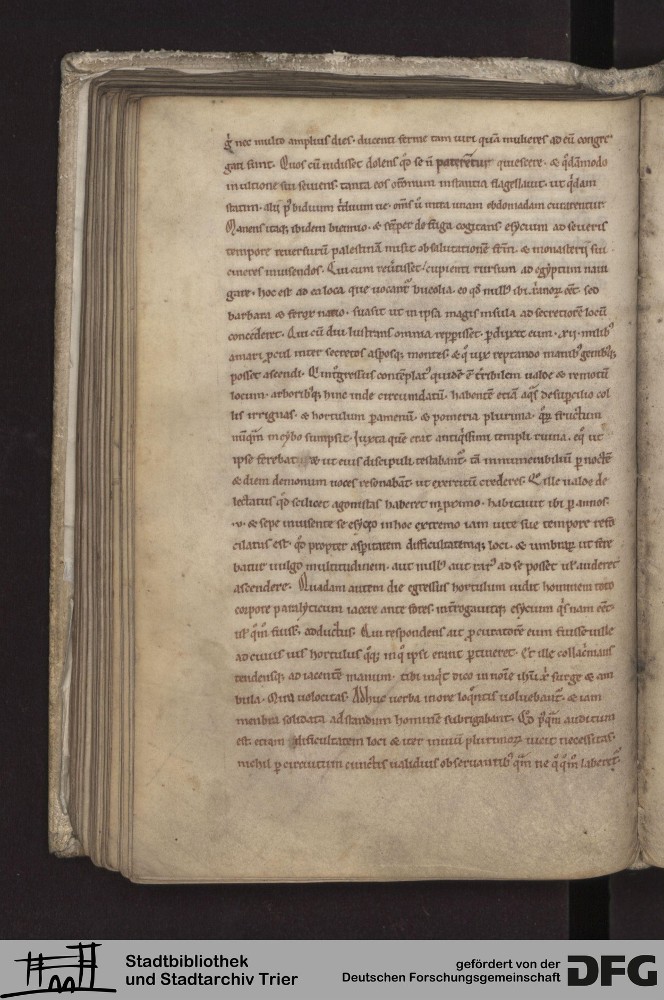 g̊ nec multo amplius dies· ducenti ferme tam uiri quā mulieres ad eū congre
gati sunt. Quos cū uidisset dolens qd̄ se n̄ pateret᷑ur quiescere· & qdāmodo
in ultione sui seuiens· tanta eos or̄onum instantia flagellauit· ut qdam
statim· alii p᷒ biduum t̓duum ue· om̄s ū intra unam ebdomadam curarentur
Manens itaq; ibidem biennio· & semp̄ de fuga cogitans esycium ad
tempore reuersurū palestinā misit ob salutationē fr̄m· & monasterii sui
cineres inuisendos. Qui cum reuertisset· cupienti rursum ad egyptum naui
gare· hoc est ad ea loca que uocant᷑ bucolia· eo qd̄ null᷒ ibi x̄anoꝝ eēt· sed
barbara & ferox natio· suasit ut in ipsa magis insula ad secretiorē locū
concederet· Qui cū diu lustrans omnia repperisset· pduxit eum .xii. milib᷒
a mari ꝓcul inter secretos asp̄osq; montes· & q̇ uix reptando manib᷒ genib᷒q;
posset ascendi· Q ingressus contēplat᷒ quidē ē tēribilem ualde & remotū
locum· arboribq; hinc inde circumdatū· habentē etiā aq̄s de supcilio col
lis irriguas· & hortulum pamenū· & pomeria plurima· quaꝝ fructum
nūqm̄ in cybo sumpsit· Iuxta quē erat antiqissimi templi ruina· eq̇ ut
ipse ferebat & ut eius discipuli testabant᷑· tā innumerabiliū p noctē
& diem demonum uoces resonabant ut exercitū crederes· Q ille ualde de
lectatus qd̄ scilicet agonistas haberet in proximo· habitauit ibi p annos
.v. & sepe inuisente se esycio in hoc extremo iam uite sue tempore refo
cilatus est· qd̄ propter asp̄itatem difficultatemq; loci· & umbraꝝ ut fere
batur uulgo multitudinem· aut null᷒ aut rar᷒ ad se posset ul̄ auderet
ascendere· Quadam autem die egressus hortulum uidit hominem toto
corpore paralyticum iacere ante fores· int̓rogauitq; esycium q̇s nam eēt·
ul̄ qm̄ fuiss&· adductus· Qui respondens ait ꝓcuratorē eum fuisse uille
ad cuius ius hortulus qq; in q̇ ipsi erant ptineret· Et ille collac̓mans
tendensq; ad iacentē manum· tibi inqt dico in noīe ih̄u x̄ surge & am
bula· Mira uelocitas· Adhuc uerba in ore loqntis uoluebant᷑· & iam
membra solidata ad standum hominē subrigabant· Qd̄ p᷒qm̄ auditum
est· etiam difficultatem loci & iter inuiū plurimoꝝ uicit necessitas·
nichil p circuitum cunctis ualidius obseruantib᷒ qm̄ ne q̇ qm̄ laberet᷑·
Stadtbibliothek
und Stadtarchiv Trier
gefördert von der
Deutschen Forschungsgemeinschaft
DFG